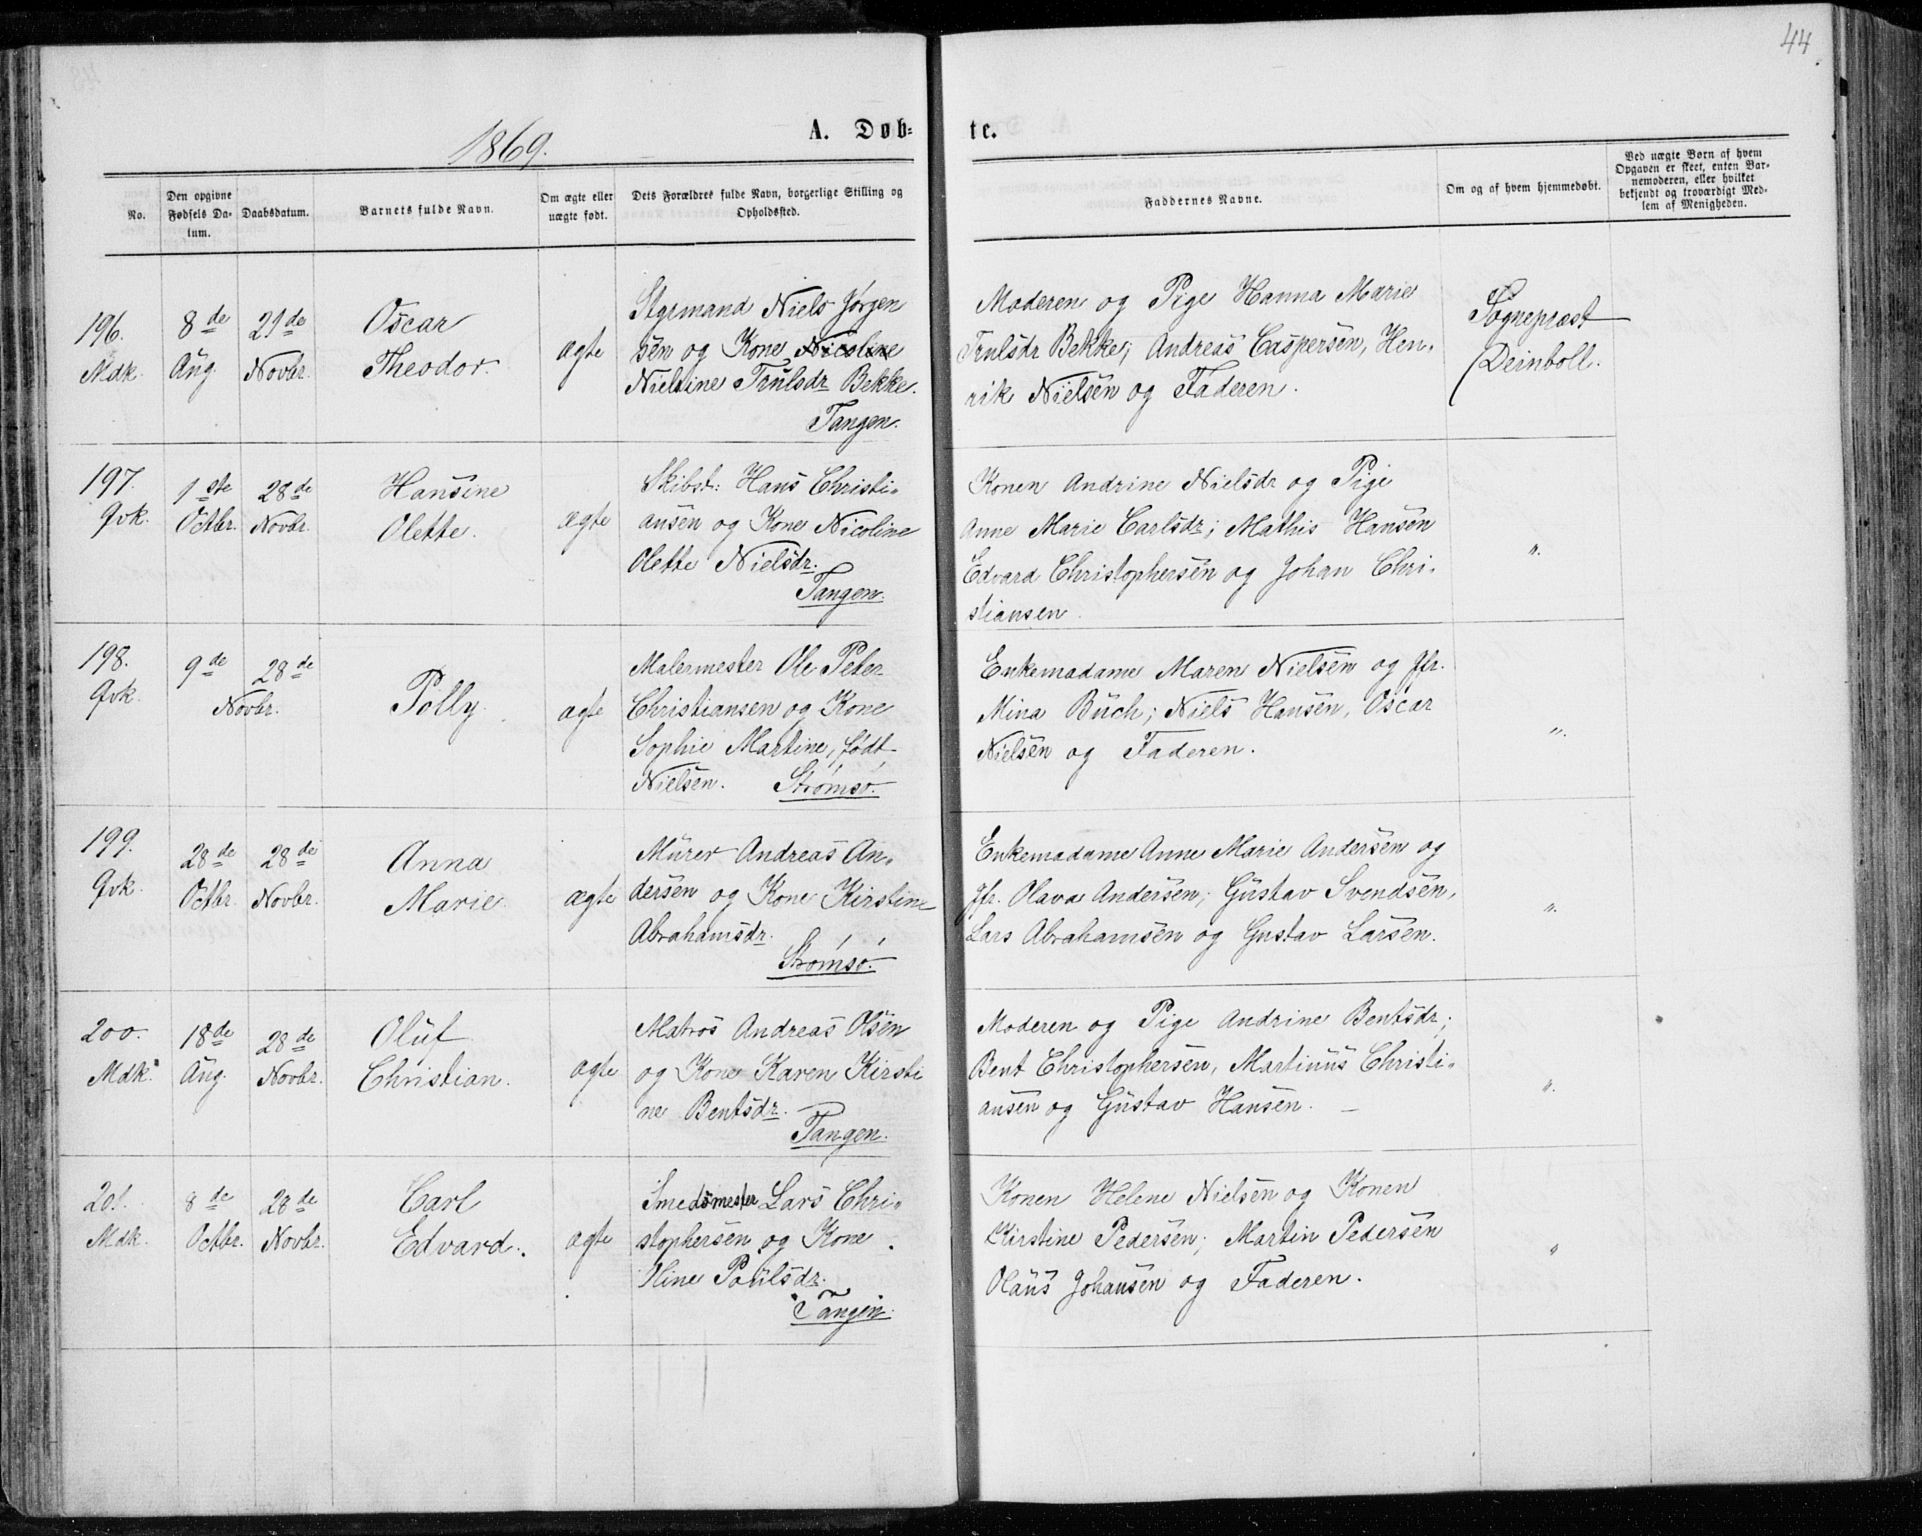 44
1869.
A. Døb-
te.
No.
Den opgivne
Fødsels Da-
tum.
Daabsdatum.
Barnets fulde Navn.
Om ægte eller
uægte født.
Dets Forældres fulde Navn, borgerlige Stilling og
Opholdssted.
Faddernes Navne.
Om og af hvem hjemmedøbt.
Ved uægte Børn af hvem
Opgaven er skeet, enten Bar-
nemoderen, eller hvilket
bekjendt og troværdigt Med-
lem af Menigheden.
196.
Mdk.
8de
Aug.
21de
Novbr.
Oscar
Theodor.
ægte
Styrmand Niels Jørgen
sen og Kone Nicoline
Nielsine Trulsdr Bekke.
Tangen.
Moderen og Pige Hanna Marie
Trulsdr Bekke; Andreas Caspersen, Hen-
rik Nielsen og Faderen.
Sognepræst
Deinboll.
197.
Qvk.
1ste
Octbr.
28de
Novbr.
Hansine
Olette.
ægte
Skibst: Hans Christi-
ansen og Kone Nicoline
Olette Nielsdr.
Tangen.
Konen Andrine Nielsdr og Pige
Anne Marie Carlsdr; Mathis Hansen
Edvard Christophersen og Johan Chri-
stiansen.
".
198.
Qvk.
9de
28de
Novbr.
Polly.
ægte
Malermester Ole Peter
Christiansen og Kone
Sophie Martine, født
Nielsen. Strømsø.
Enkemadame Maren Nielsen og Jfr.
Mina Buch; Niels Hansen, Oscar
Nielsen og Faderen.
".
199.
Qvk.
28de
Octbr.
28de
Novbr.
Anna
Marie.
ægte
Murer Andreas An-
dersen og Kone Kirstine
Abrahamsdr.
Strømsø.
Enkemadame Anne Marie Andersen og
Jfr. Olava Andersen; Gustav Svendsen,
Lars Abrahamsen og Gustav Larsen.
".
200.
Mdk.
18de
Aug.
28de
Novbr.
Oluf
Christian.
ægte
Matros Andreas Olsen
og Kone Karen Kirsti
ne Bentsdr.
Tangen.
Moderen og Pige Andrine Bentsdr;
Bent Christophersen, Martinus Christi-
ansen og Gustav Hansen. —
".
201.
Mdk.
8de
Octbr.
28de
Novbr.
Carl
Edvard.
ægte
Smedsmester Lars Chri-
stophersen og Kone
Iline Poulsdr.
Tangen.
Konen Helene Nielsen og Konen
Kirstine Pedersen; Martin Pedersen
Olaus Johansen og Faderen.
"